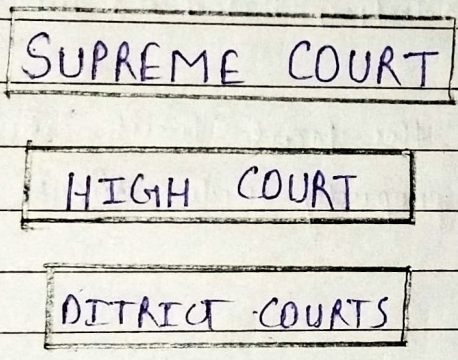 SUPREME COURT
HIGH COURT
DITRICT COURTS